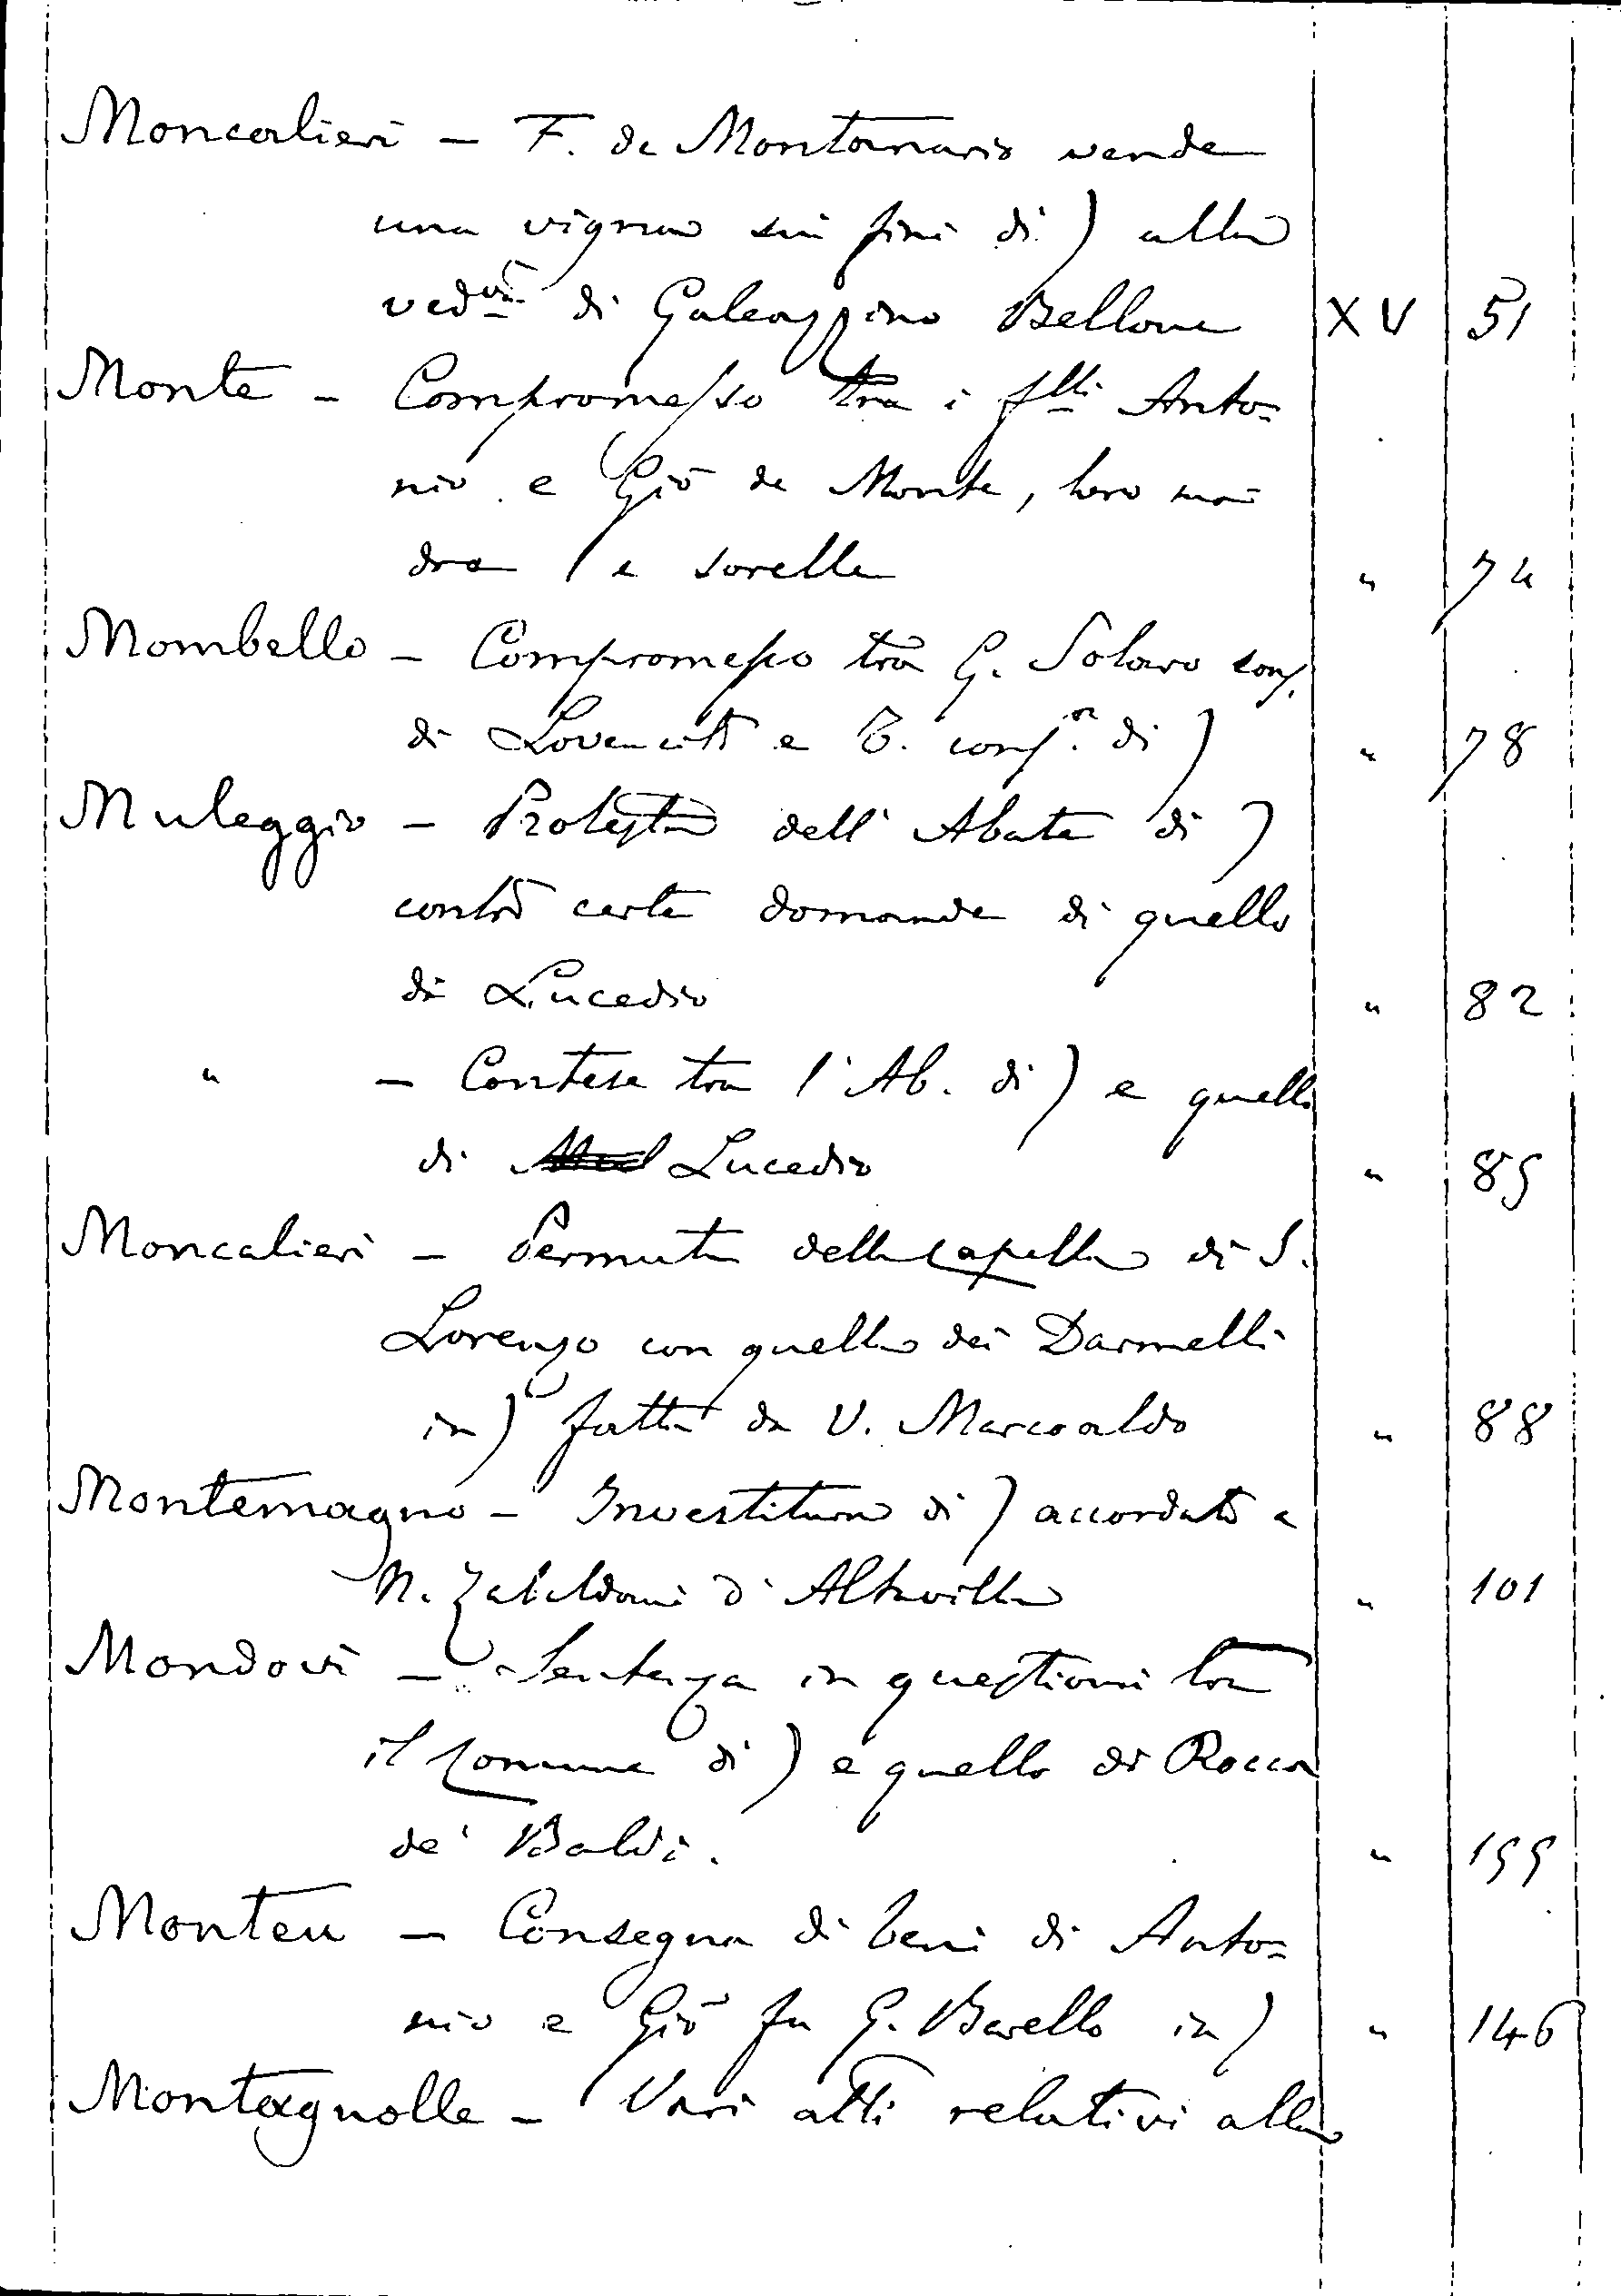 Moncalieri — F. de Montanaris vende
una vigna sui fini di ) alla
ved.va di Galeazzino Bellone XV 51
Monte - Compromesso tra i flli Anto=
nio e Giō de Monte, loro ma
dre e sorelle " 74
Mombello - Compromesso tra G. Solaro cons.
di Lovencito e B. cons.r di ) " 78
Muleggio - Protesta dell' Abate di )
contro certe domande di quello
di Lucedio " 82
" - Contese tra l'Ab. di ) e quello
di Lucedio " 85
Moncalieri - Permuta della Capella di S.
Lorenzo con quella dei Darmelli
in ) fatta da V. Marcoaldo " 88
Montemagno - Investitura di ) accordata a
N. Zabaldani d' Altavilla " 101
Mondovi - Sentenza in questioni tra
il Comune di ) e quello di Rocca
de' Baldi. " 155
Monteu - Consegna di beni di Anto=
nio e Giō fu G. Barello in ) " 146
Montagnolle - Vari atti relativi alla